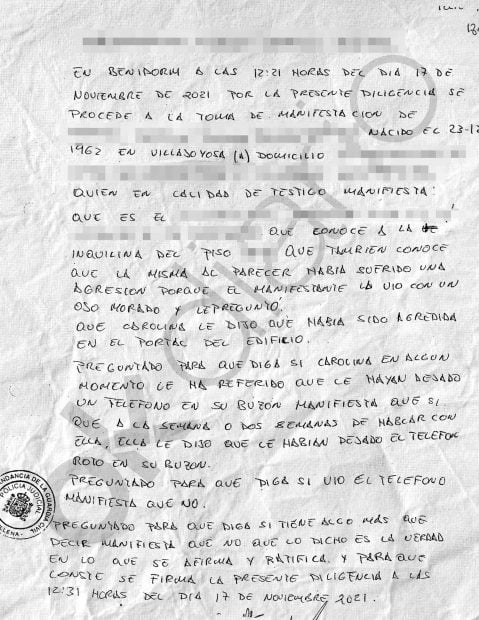 EN BENIDORM A LAS 12:21 HORAS DEL DIA 17 DE
NOVIEMBRE DE 2021 POR LA PRESENTE DILIGENCIA SE
PROCEDE A LA TOMA DE MANIFESTACION DE
NACIDO EL 23-12
1962 EN VILLAJOYOSA (A) DOMICILIO
QUIEN EN CALIDAD DE TESTIGO MANIFIESTA:
QUE ES EL
QUE CONOCE A LA
INQUILINA DEL PISO QUE TAMBIEN CONOCE
QUE LA MISMA AL PARECER HABIA SUFRIDO UNA
AGRESION PORQUE EL MANIFESTANTE LA VIO CON UN
OJO MORADO Y LE PREGUNTÓ.
QUE CAROLINA LE DIJO QUE HABIA SIDO AGREDIDA
EN EL PORTAL DEL EDIFICIO.
PREGUNTADO PARA QUE DIGA SI CAROLINA EN ALGUN
MOMENTO LE HA REFERIDO QUE LE HAYAN DEJADO
UN TELEFONO EN SU BUZON MANIFIESTA QUE SI
QUE A LA SEMANA O DOS SEMANAS DE HABLAR CON
ELLA, ELLA LE DIJO QUE LE HABIAN DEJADO EL TELEFON
ROTO EN SU BUZON.
PREGUNTADO PARA QUE DIGA SI VIO EL TELEFONO
MANIFIESTA QUE NO.
PREGUNTADO PARA QUE DIGA SI TIENE ALGO MÁS QUE
DECIR MANIFIESTA QUE NO QUE LO DICHO ES LA VERDAD
EN LO QUE SE AFIRMA Y RATIFICA. Y PARA QUE
CONSTE SE FIRMA LA PRESENTE DILIGENCIA A LAS
12:31 HORAS DEL DIA 17 DE NOVIEMBRE 2021.
COMANDANCIA DE LA GUARDIA CIVIL
POLICIA JUDICIAL